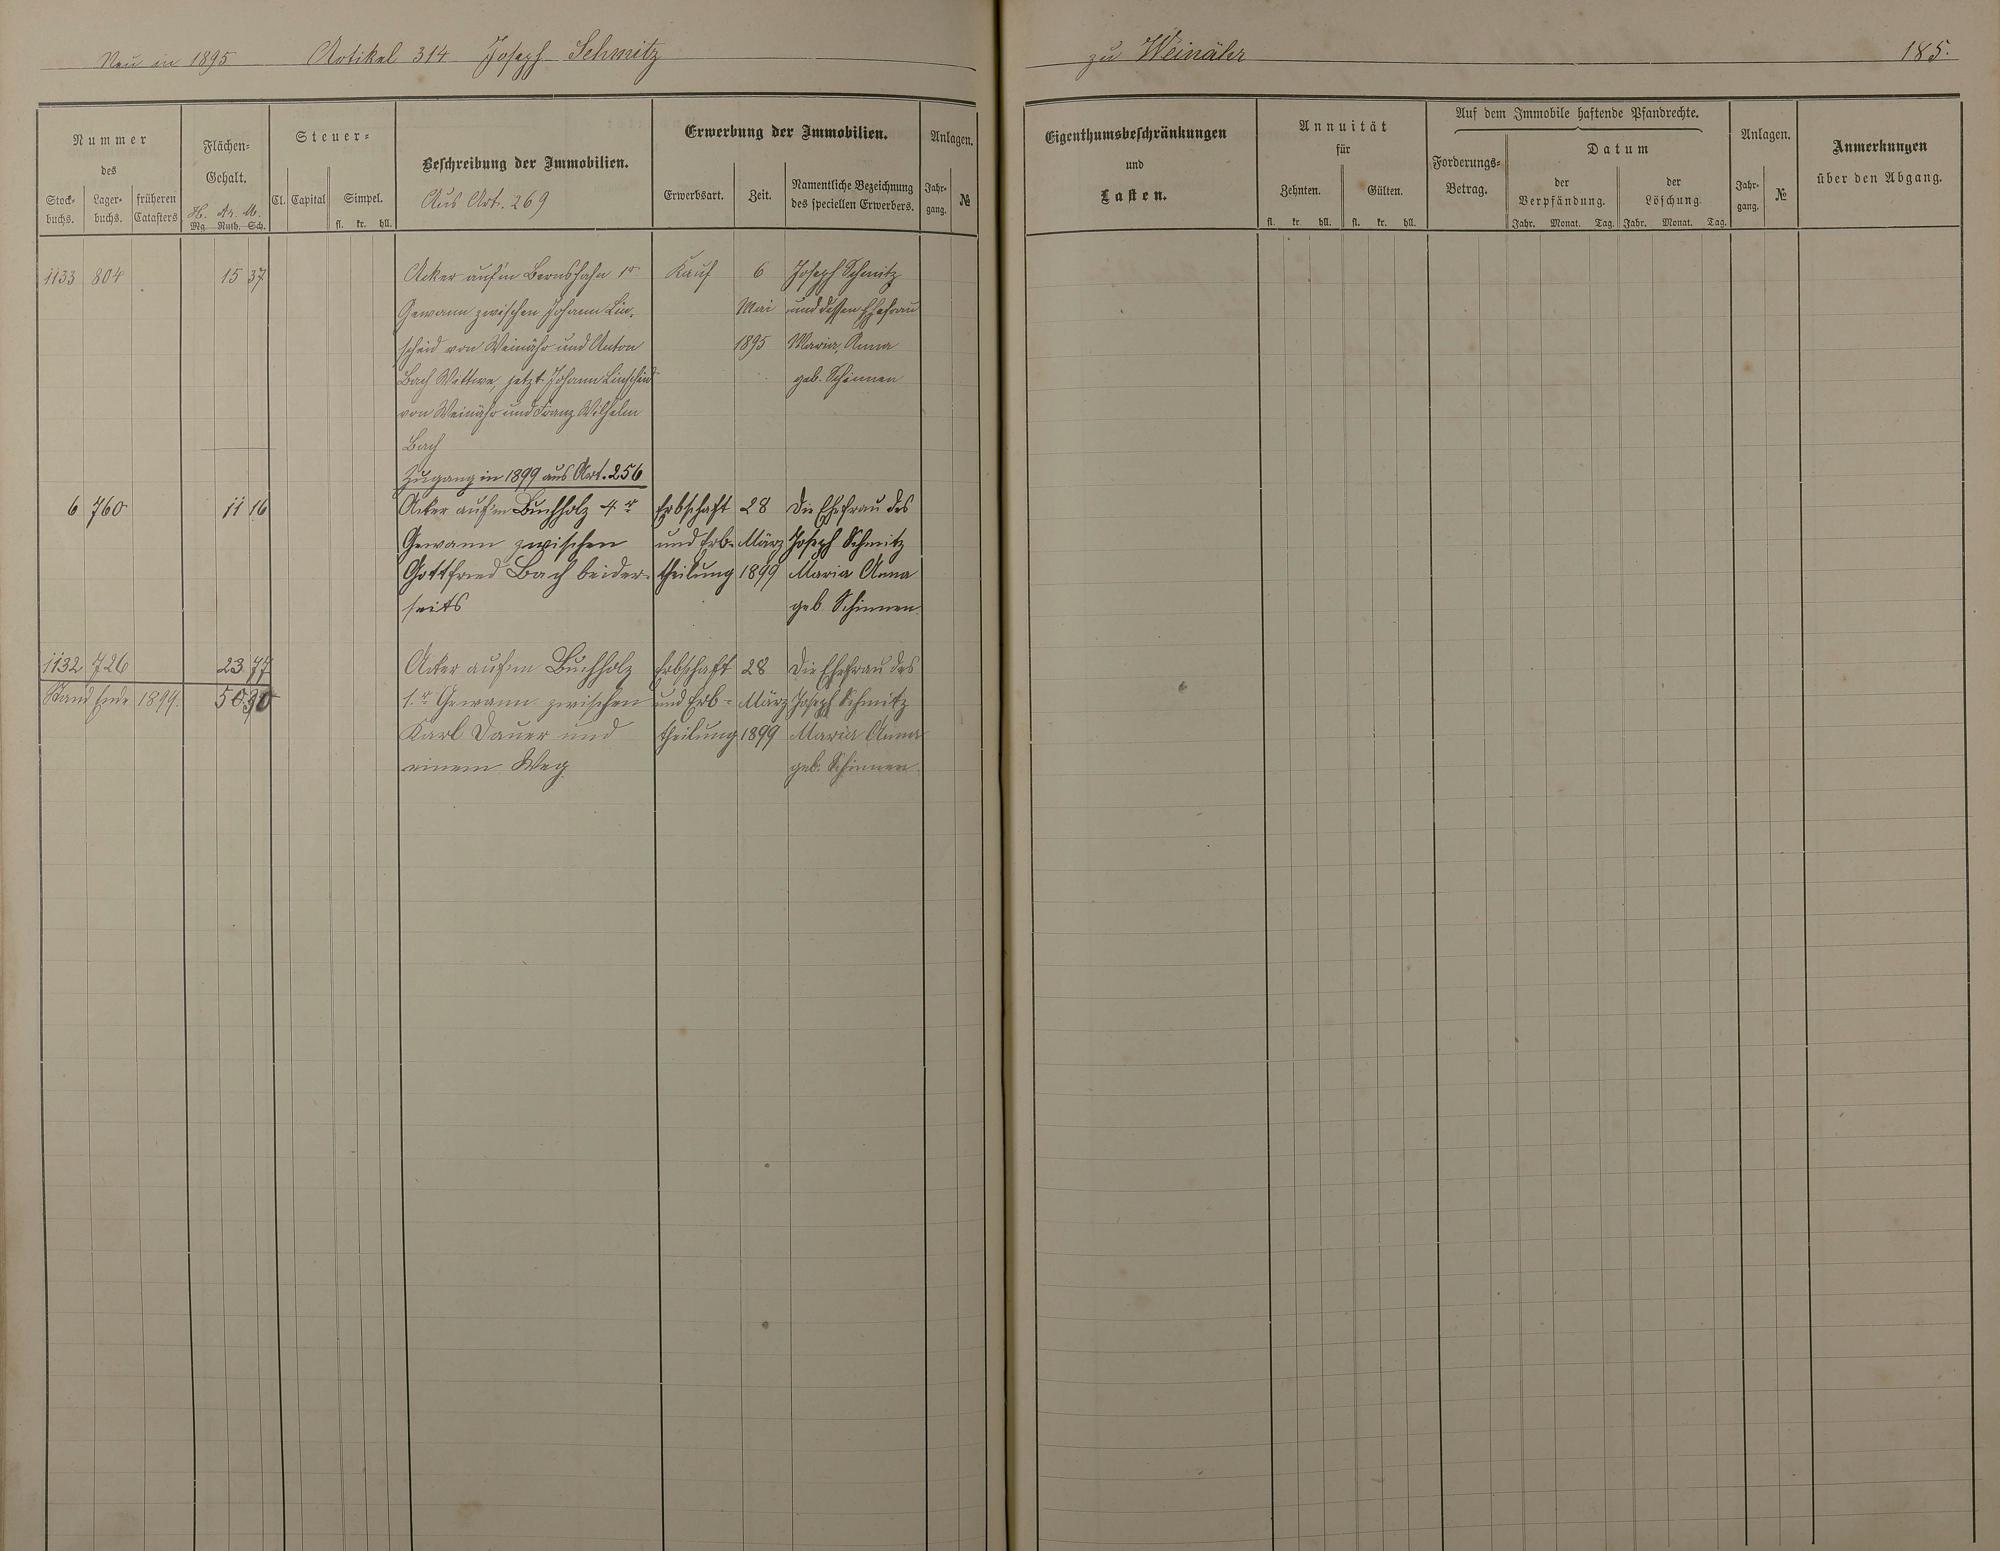 Neu in 1895 Artikel 314 Joseph Schmitz
zu Weinähr 185.
Nummer
des
Stock-
buchs.
Lager-
buchs.
früheren
Catasters
Flächen-
Gehalt.
H. Ar. M.
Mg. Ruth. Sch.
Steuer-
Cl. Capital Simpel.
fl. kr. hll.
Beschreibung der Immobilien.
Aus Art. 269
Erwerbung der Immobilien.
Erwerbsart. Zeit.
Namentliche Bezeichnung
des speciellen Erwerbers.
Anlagen.
Jahr-
gang.
№
Eigenthumsbeschränkungen
und
Lasten.
Annuität
für
Zehnten. Gülten.
fl. kr. hll. fl. kr. hll.
Auf dem Immobile haftende Pfandrechte.
Forderungs-
Betrag.
Datum
der
Verpfändung.
der
Löschung.
Jahr. Monat. Tag. Jahr. Monat. Tag.
Anlagen.
Jahr-
gang.
№
Anmerkungen
über den Abgang.
1133 804 15 37 Acker auf'm Bernshahn 1r Kauf 6 Joseph Schmitz
Gewann zwischen Johann Lin- Mai und dessen Ehefrau
scheid von Weinähr und Anton 1895 Maria Anna
Bach Wittwe, jetzt Johann Linscheid geb. Schinnen
von Weinähr und Franz Wilhelm
Bach
Zugang in 1899 aus Art. 256
6 760 11 16 Acker auf'm Buchholz 4.r Erbschaft 28 Die Ehefrau des
Gewann zwischen und Erb- März Joseph Schmitz
Gottfried Bach beider- theilung 1899 Maria Anna
seits geb. Schinnen.
1132 726 23 77 Acker auf'm Buchholz Erbschaft 28 Die Ehefrau des
Stand Ende 1899. 50 30 1.r Gewann zwischen und Erb- März Joseph Schmitz
Karl Dauer und theilung 1899 Maria Anna
einem Weg. geb. Schinnen.